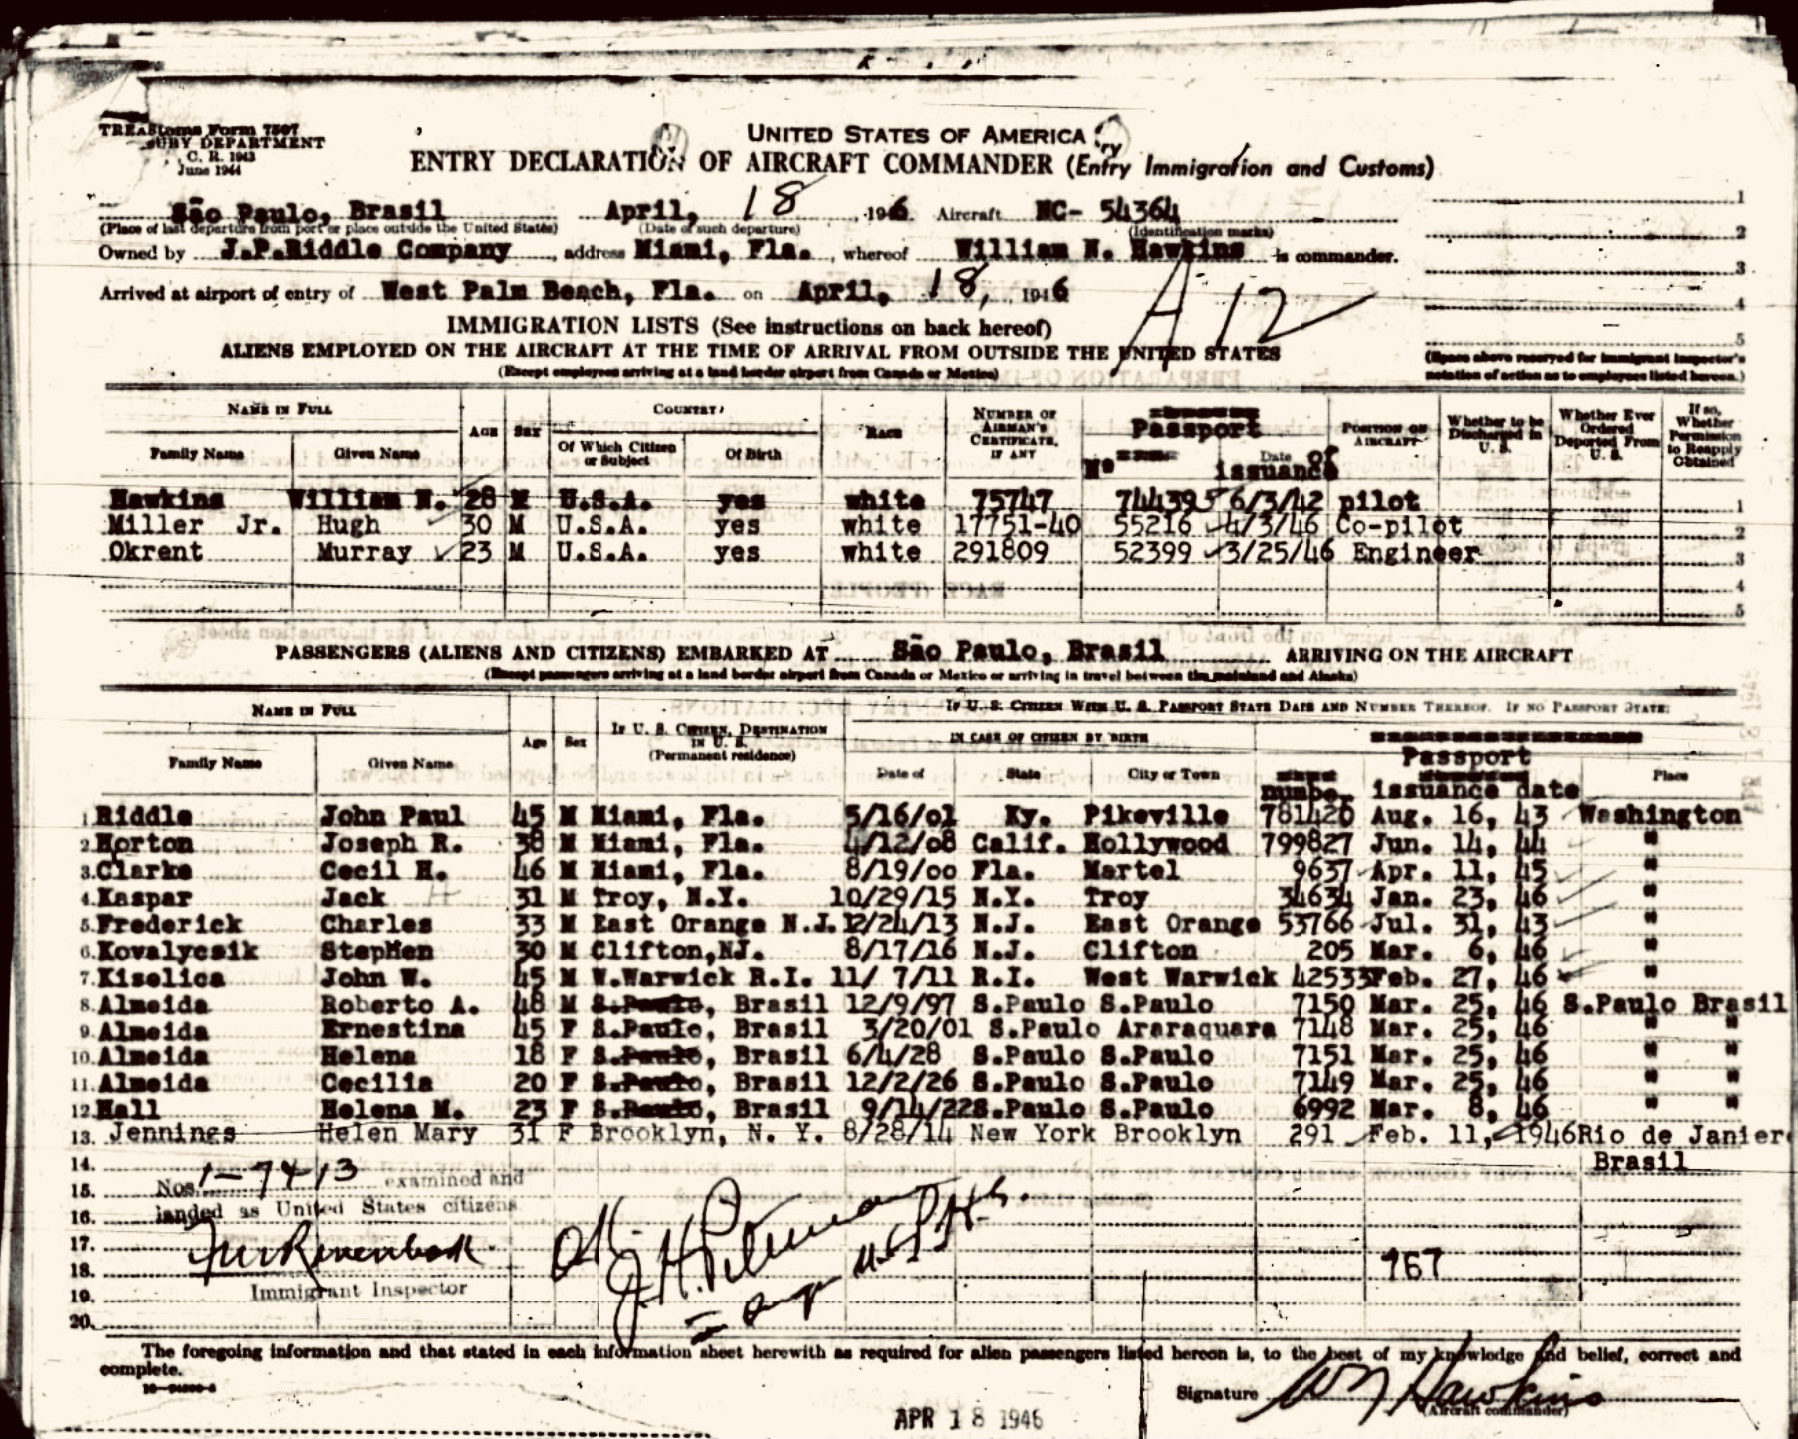 UNITED STATES OF AMERICA
TREASURY DEPARTMENT
C. R. 1943
June 1944
ENTRY DECLARATION OF AIRCRAFT COMMANDER (Entry Immigration and Customs)
São Paulo, Brasil April, 18, 1946 Aircraft NC- 54364
(Place of last departure from port or place outside the United States) (Date of such departure) (Identification marks)
Owned by J.P.Riddle Company, address Miami, Fla., whereof William N. Hawkins is commander.
Arrived at airport of entry of West Palm Beach, Fla. on April, 18, 1946
A 12
1
2
3
4
5
(Space above reserved for immigrant inspector's notation of action as to employees listed hereon.)
IMMIGRATION LISTS (See instructions on back hereof)
ALIENS EMPLOYED ON THE AIRCRAFT AT THE TIME OF ARRIVAL FROM OUTSIDE THE UNITED STATES
(Except employees arriving at a land border airport from Canada or Mexico)
NAME IN FULL
Family Name Given Name
AGE SEX
COUNTRY
Of Which Citizen or Subject Of Birth
RACE
NUMBER OF AIRMAN'S CERTIFICATE, IF ANY
Passport
Nº Date of issuance
POSITION ON AIRCRAFT
Whether to be Discharged in U. S.
Whether Ever Ordered Deported From U. S.
If so, Whether Permission to Reapply Obtained
Hawkins William N. 28 M U.S.A. yes white 75747 74439 6/3/42 pilot 1
Miller Jr. Hugh 30 M U.S.A. yes white 17751-40 55216 4/3/46 Co-pilot 2
Okrent Murray 23 M U.S.A. yes white 291809 52399 3/25/46 Engineer 3
4
5
PASSENGERS (ALIENS AND CITIZENS) EMBARKED AT São Paulo, Brasil ARRIVING ON THE AIRCRAFT
(Except passengers arriving at a land border airport from Canada or Mexico or arriving in travel between the mainland and Alaska)
NAME IN FULL
Family Name Given Name
Age Sex
IF U. S. CITIZEN, DESTINATION IN U. S.
(Permanent residence)
IF U. S. CITIZEN WITH U. S. PASSPORT STATE DATE AND NUMBER THEREOF. IF NO PASSPORT STATE:
IN CASE OF CITIZEN BY BIRTH
Date of State City or Town
Passport
number issuance date Place
1 Riddle John Paul 45 M Miami, Fla. 5/16/01 Ky. Pikeville 781426 Aug. 16, 43 Washington
2. Horton Joseph R. 38 M Miami, Fla. 4/12/08 Calif. Hollywood 799827 Jun. 14, 44 "
3. Clarke Cecil H. 46 M Miami, Fla. 8/19/00 Fla. Martel 9637 Apr. 11, 45 "
4. Kaspar Jack 31 M Troy, N.Y. 10/29/15 N.Y. Troy 34634 Jan. 23, 46 "
5. Frederick Charles 33 M East Orange N.J. 12/24/13 N.J. East Orange 53766 Jul. 31, 43 "
6. Kovalycsik Stephen 30 M Clifton,NJ. 8/17/16 N.J. Clifton 205 Mar. 6, 46 "
7. Kiselica John W. 45 M W.Warwick R.I. 11/ 7/11 R.I. West Warwick 42533 Feb. 27, 46 "
8. Almeida Roberto A. 48 M S.Paulo, Brasil 12/9/97 S.Paulo S.Paulo 7150 Mar. 25, 46 S.Paulo Brasil
9. Almeida Ernestina 45 F S.Paulo, Brasil 3/20/01 S.Paulo Araraquara 7148 Mar. 25, 46 " "
10. Almeida Helena 18 F S.Paulo, Brasil 6/4/28 S.Paulo S.Paulo 7151 Mar. 25, 46 " "
11. Almeida Cecilia 20 F S.Paulo, Brasil 12/2/26 S.Paulo S.Paulo 7149 Mar. 25, 46 " "
12. Hall Helena M. 23 F S.Paulo, Brasil 9/14/22 S.Paulo S.Paulo 6992 Mar. 8, 46 " "
13. Jennings Helen Mary 31 F Brooklyn, N. Y. 8/28/14 New York Brooklyn 291 Feb. 11, 1946 Rio de Janier
14. Brasil
15. Nos. 1-7 & 13 examined and
16. landed as United States citizens
17.
18. 967
Immigrant Inspector
19.
20.
O.K.
U.S.P.H.S.
The foregoing information and that stated in each information sheet herewith as required for alien passengers listed hereon is, to the best of my knowledge and belief, correct and
complete.
Signature W N Hawkins
(Aircraft commander)
APR 18 1946